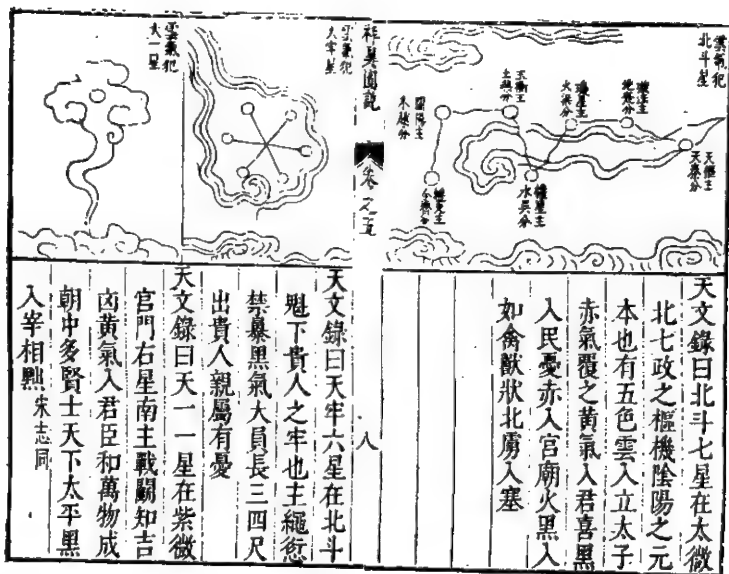 雲氣犯
北斗星
天樞主
天秦分
火梁分
權星主
水吳分
玉衡主
土燕分
木趙分
天文錄曰北斗七星在太微
北七政之樞機陰陽之元
本也有五色雲入立太子
赤氣覆之黃氣入君喜黑
入民憂赤入宮廟火黑入
如禽獸狀北虜入塞
祥異圖說
卷之五
八
雲氣犯
天牢星
天文錄曰天牢六星在北斗
魁下貴人之牢也主繩愆
禁暴黑氣大員長三四尺
出貴人親屬有憂
雲氣犯
天一星
天文錄曰天一一星在紫微
宮門右星南主戰鬭知吉
凶黃氣入君臣和萬物成
朝中多賢士天下太平黑
入宰相黜宋志同